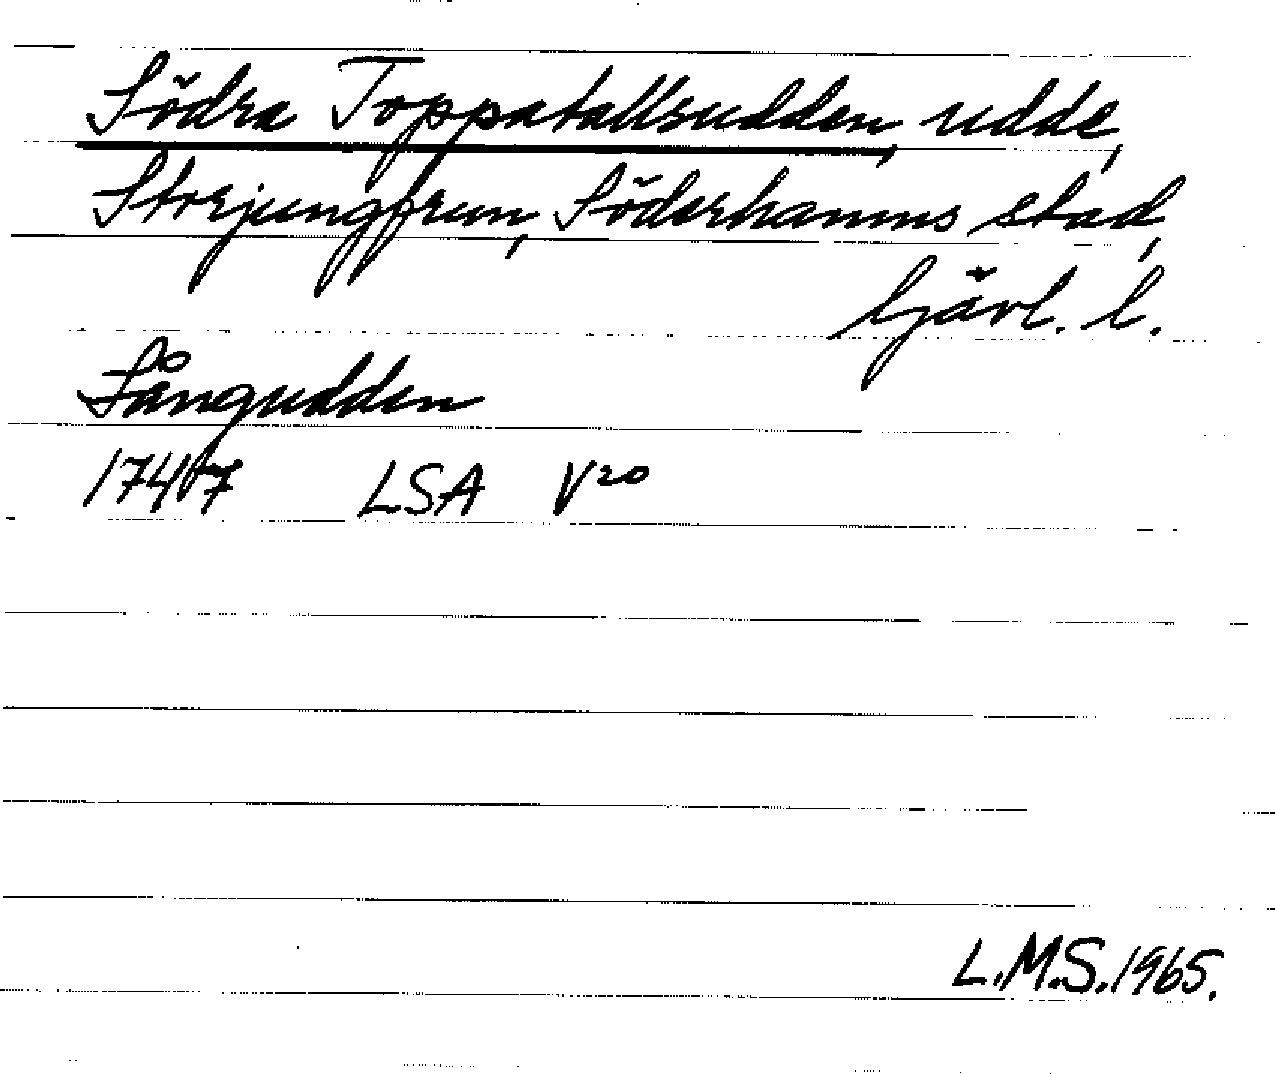 Södra Toppatallsudden, udde,
Storjungfrun, Söderhamns stad,
Gävl. l.
Långudden
1747 LSA V20
L.M.S. 1965.